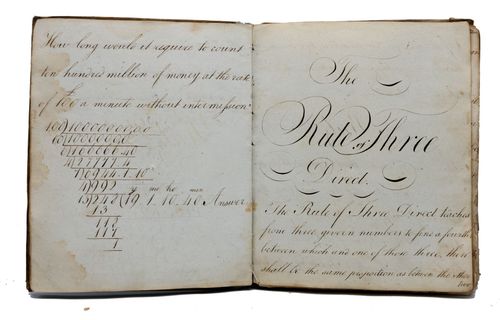 How long would it require to count
ten hundred million of money at the rate
of 100 a minute without intermission?
100)1000000000
60)10000000
6)1000000.40
4)27777.4
7)6944.1.10
4)992
ys mo ho min
13)248(19.1.10.40 Answer
13
118
117
1
The
Rule of Three
Direct.
The Rule of Three Direct teaches
from three given numbers to find a fourth
between which and one of those three, there
shall be the same proposition as between the other
two